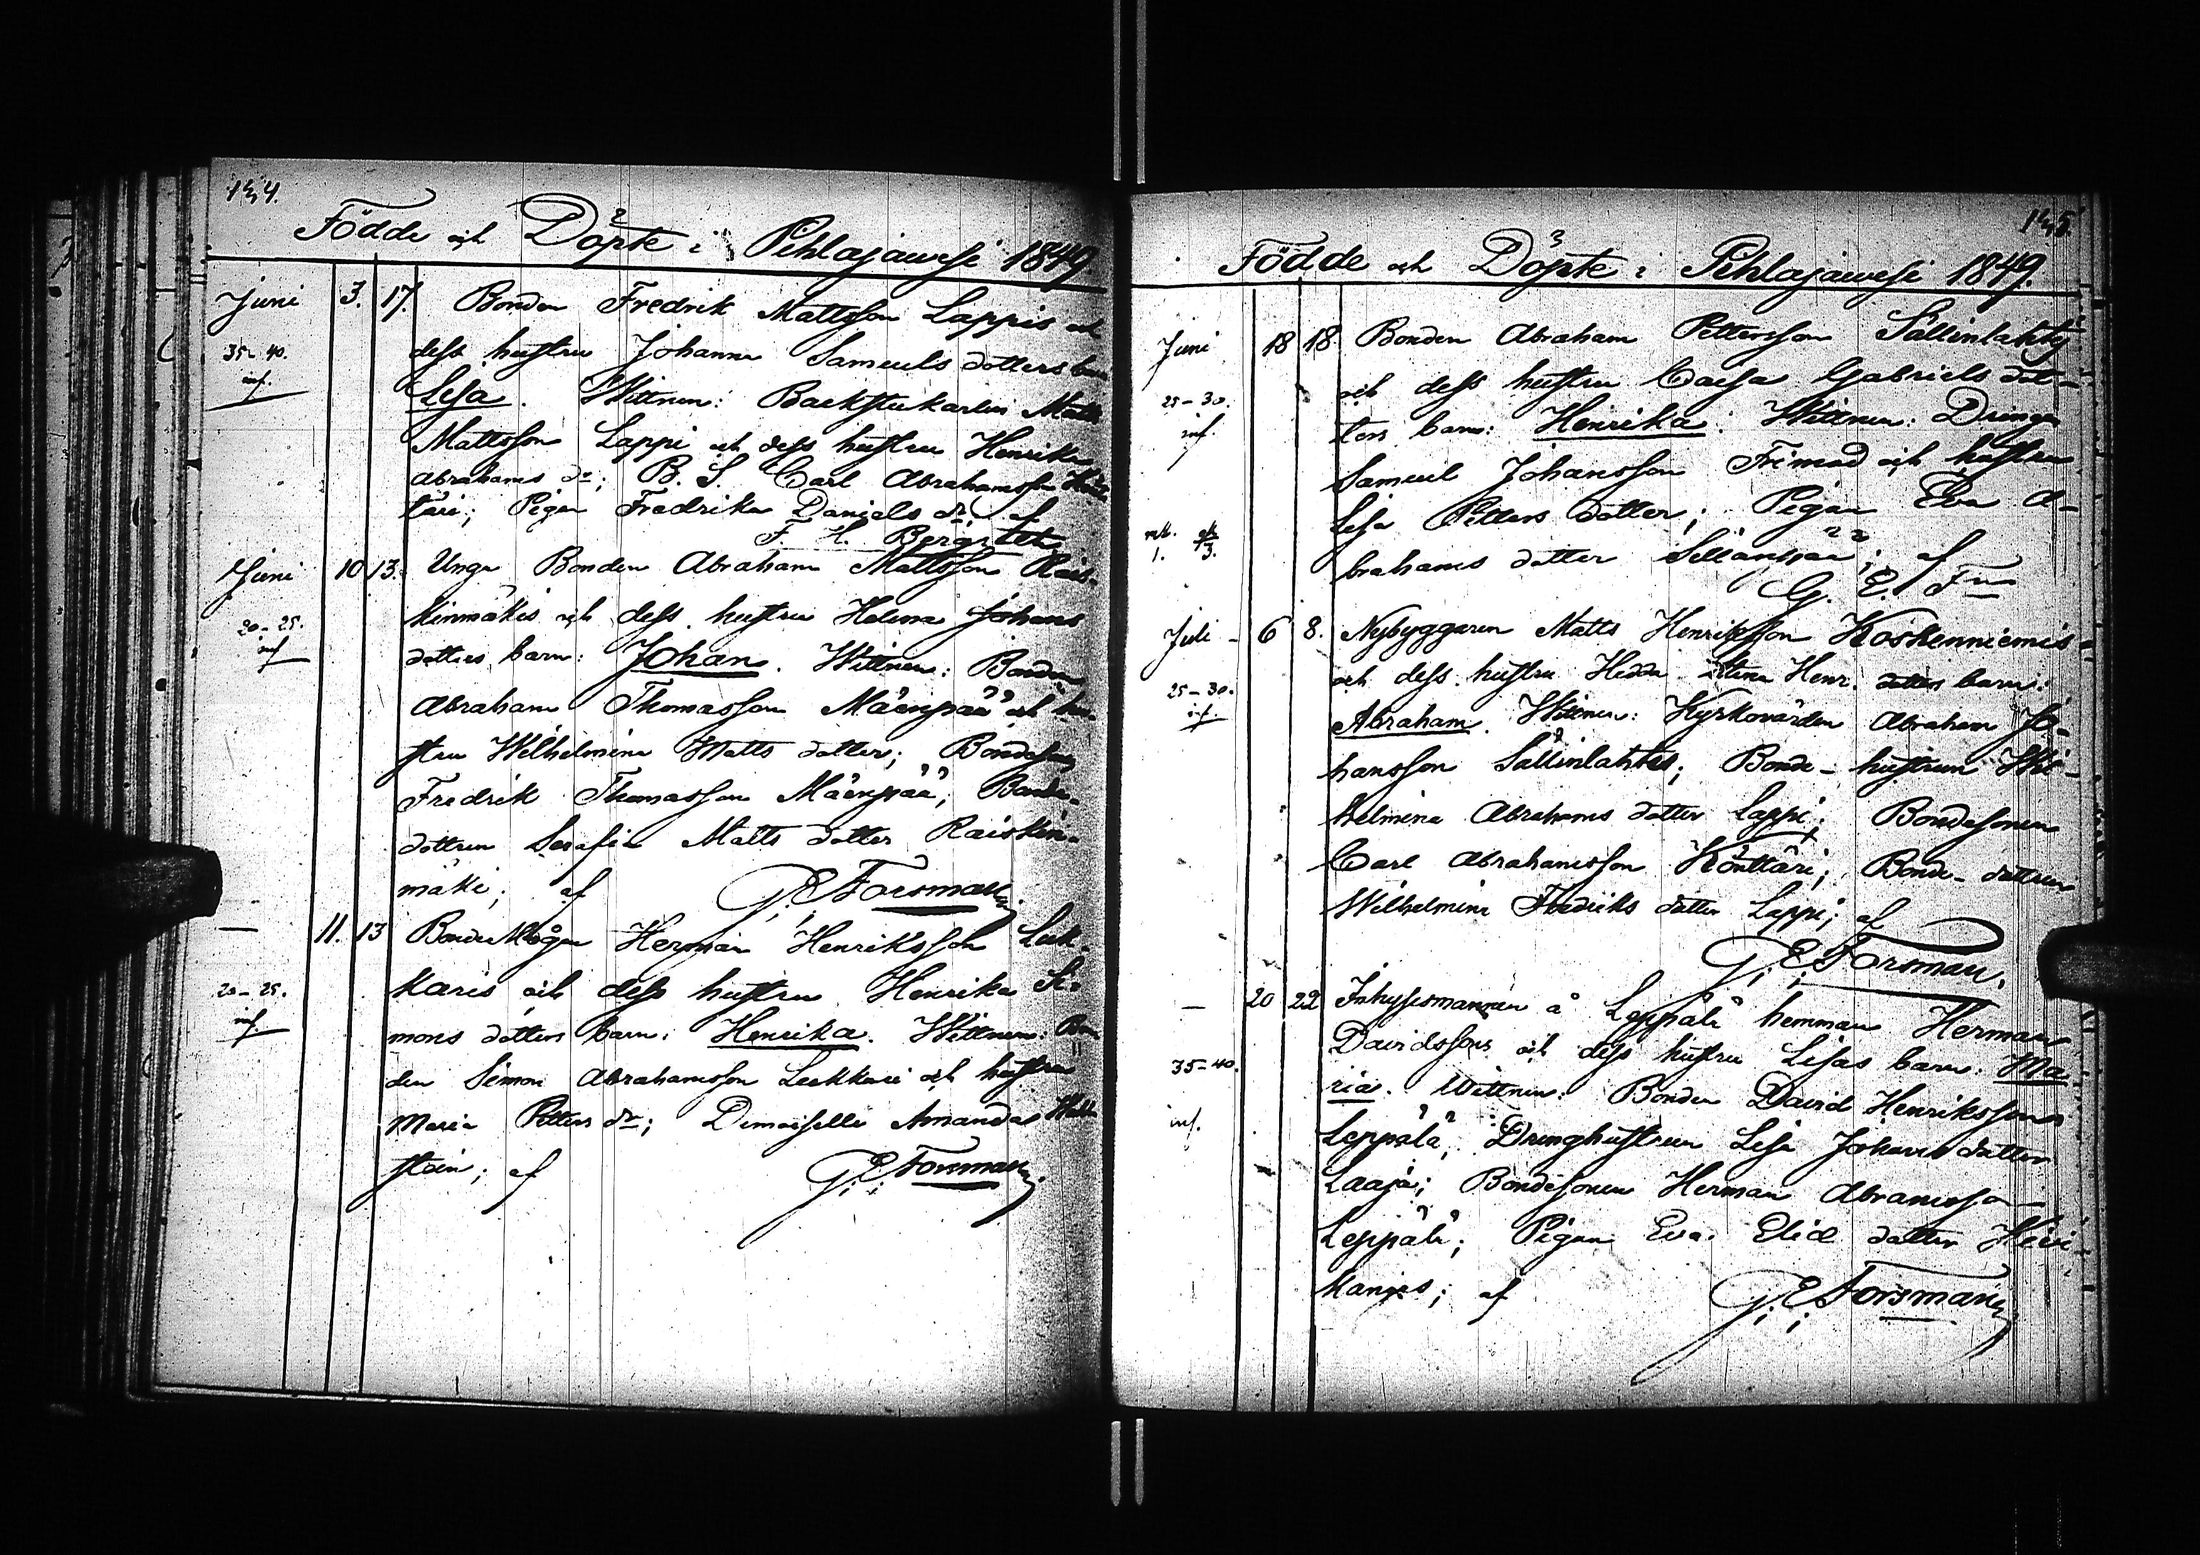 144.
Födde och Döpte i Pihlajawesi 1849
Juni 3. 17. Bonden Fredrik Mattsson Lappis och
35–40. dess hustru Johanna Samuels dotters barn
inf. Lisa. Wittnen: Backstukarlen Matts
Mattsson Lappi och dess hustru Henrika
Abrahams dr; B. S. Carl Abrahamsson Könt-
täri; Pigan Fredrika Daniels dr; af
F. H. Bergstedt
Juni 10 13. Unge Bonden Abraham Mattsson Rais-
kinmäkis och dess hustru Helena Johans
20–25. inf dotters barn: Johan. Wittnen: Bonden
Abraham Thomasson Mäenpää och hu-
stru Wilhelmina Matts dotter; Bondesonen
Fredrik Thomasson Mäenpää; Bonde-
dottren Serafia Matts dotter Raiskin-
mäki; af G. E. Forsman.
— 11. 13 Bondemågen Herman Henriksson Leek-
20–25. karis och dess hustru Henrika Si-
inf. mons dotters barn: Henrika. Wittnen: Bon
den Simon Abrahamsson Leekkari och hustru
Maria Petters dr; Demoiselle Amanda
stein; af G. E. Forsman.
145
Födde och Döpte i Pihlajawesi 1849.
Juni 18 18 Bonden Abraham Pettersson Sällinlahtis
25–30. och dess hustru Caisa Gabriels dot-
inf. ters barn: Henrika. Wittnen: Drengen
Samuel Johansson Frimad och hustru
Lisa Petters dotter; Pigan Eva A-
1. 3. brahams dotter Sillanpää; af
G. E. Fnn
Juli – 6 8. Nybyggaren Matts Henriksson Koskenniemis
och dess hustru Hedda Stina Henr. dotters barn:
25–30. inf. Abraham. Wittnen: Kyrkovärden Abraham Jo-
hansson Sällinlahti; Bonde-hustrun Wil-
helmina Abrahams dotter Lappi; Bondesonen
Carl Abrahamsson Könttäri; Bonde-dottren
Wilhelmina Fredriks dotter Lappi; af
G. E. Forsman.
— 20 22 Inhysesmannen å Leppälä hemman Herman
Davidssons och dess hustru Lisas barn: Ma-
35–40. ria. Wittnen: Bonden David Henriksson
inf. Leppälä; Dränghustrun Lisa Johans dotter
Laaja; Bondesonen Herman Abramsson
Leppälä; Pigan Eva Elid dotter Hirvi-
kangas; af G. E. Forsman